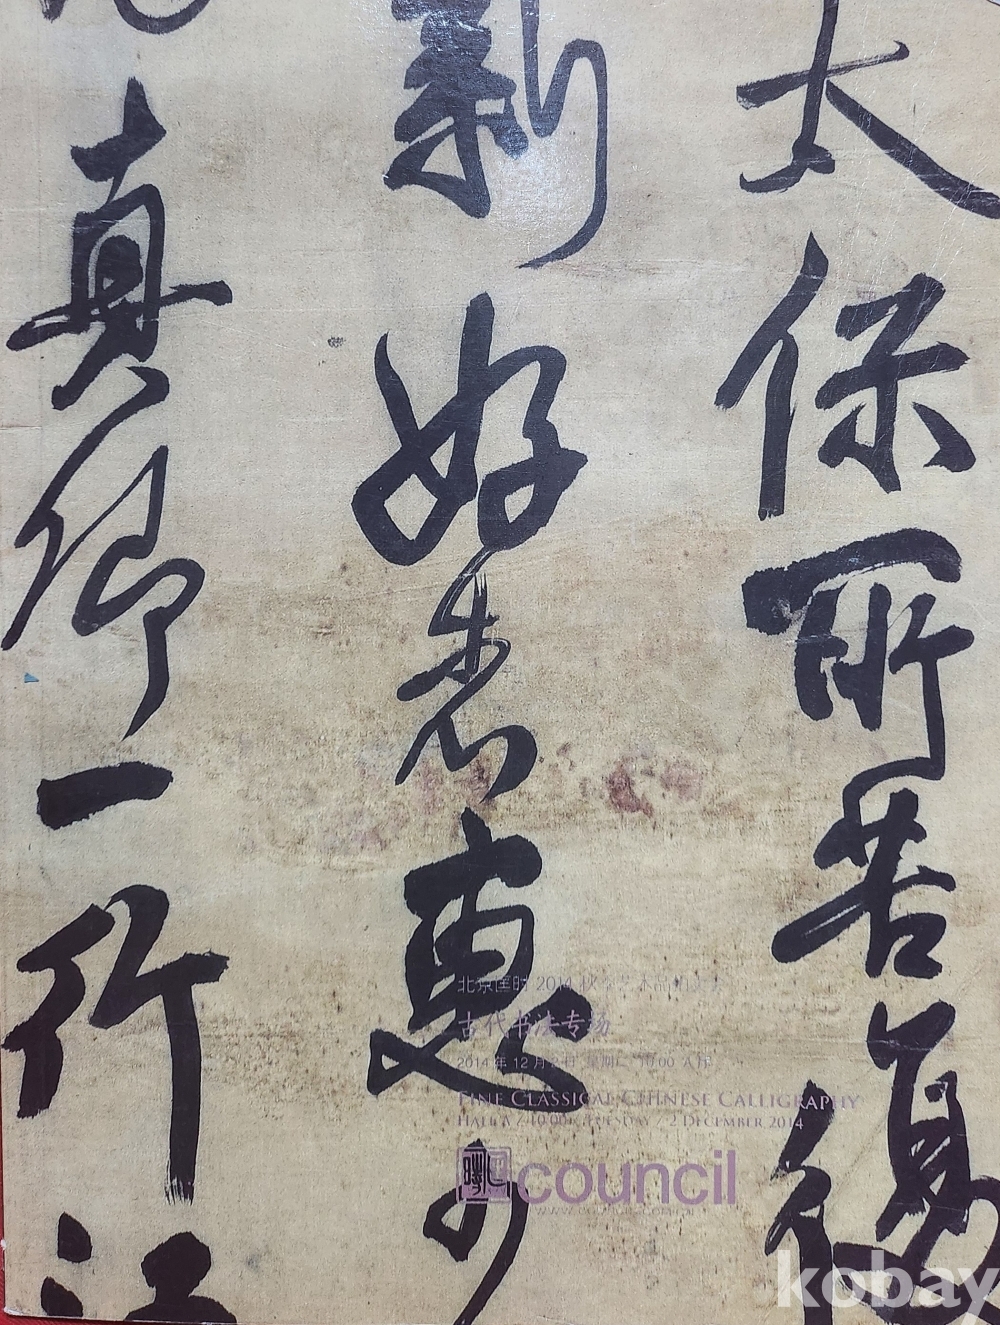 太保所苦須
新好者惠少
真卿一行江
北京匡时 2014 秋季艺术品拍卖会
古代书法专场
2014 年 12 月 2 日 星期二 10:00 A 厅
FINE CLASSICAL CHINESE CALLIGRAPHY
HALL A / 10:00 / TUESDAY / 2 DECEMBER 2014
council
kobay